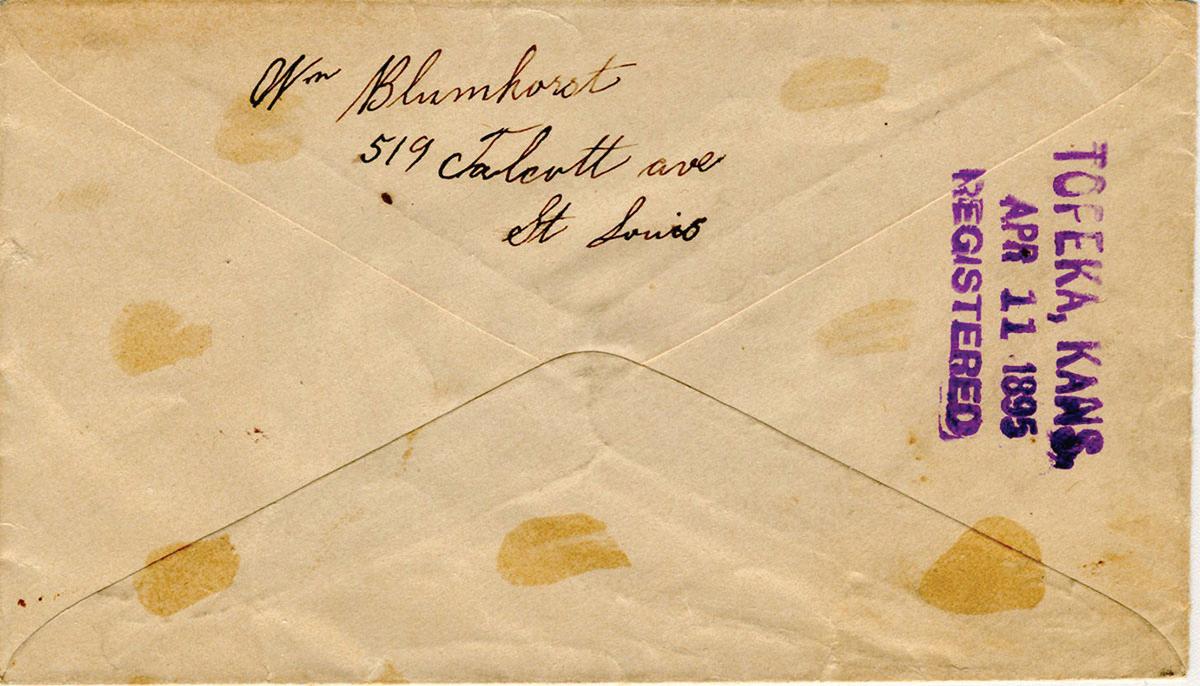 Wm Blumhorst
519 Talcott ave
St Louis
TOPEKA, KANS.
APR 11 1895
REGISTERED